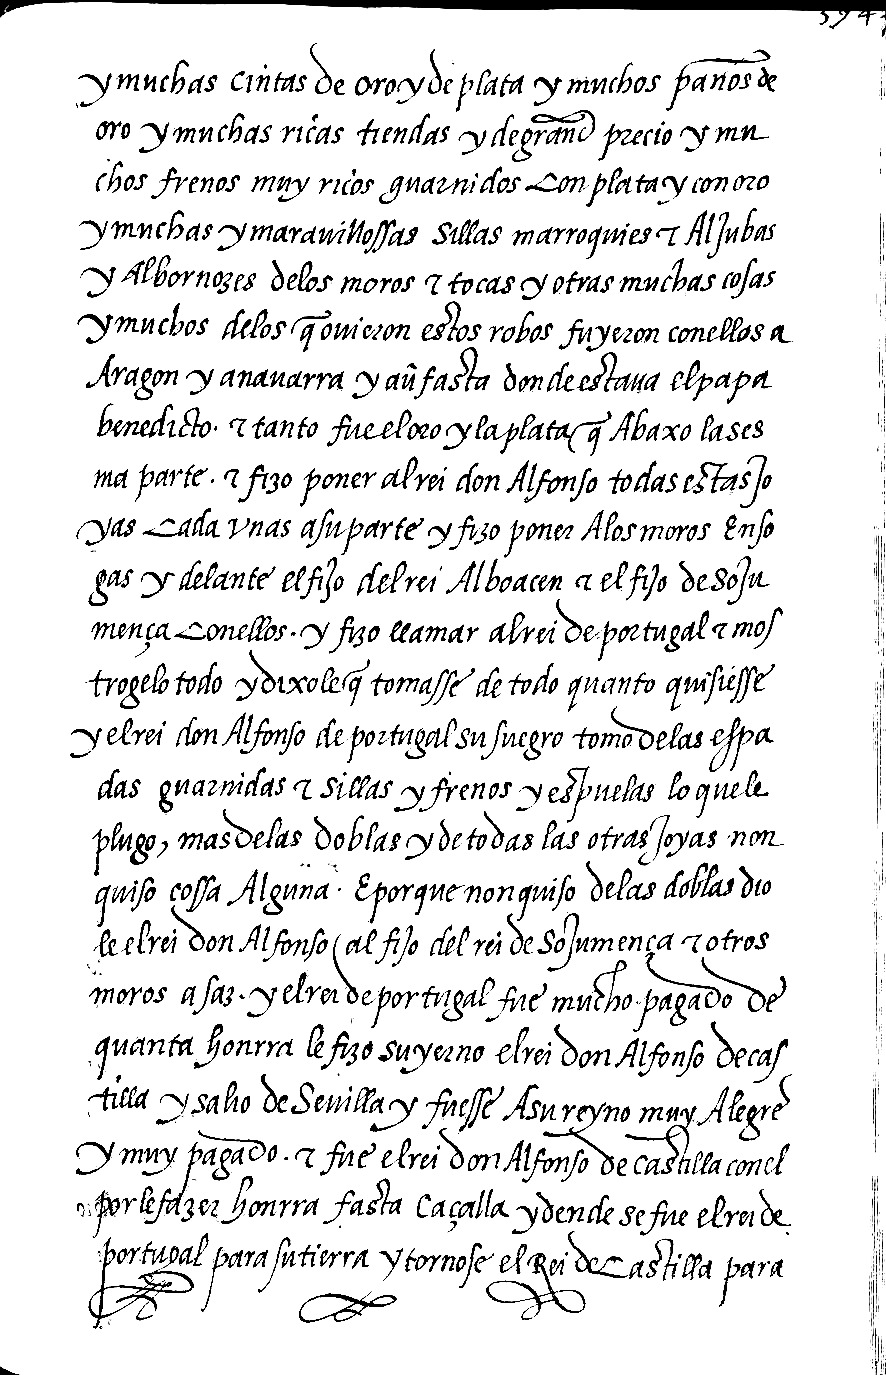 y muchas cintas de oro y de plata y muchos paños de
oro y muchas ricas tiendas y de grand precio y mu
chos frenos muy ricos guarnidos con plata y con oro
y muchas y maravillossas sillas marroquies τ Aljubas
y Albornozes de los moros τ tocas y otras muchas cosas
y muchos de los q̃ ouieron estos robos fuyeron con ellos a
Aragon y a nauarra y aũ fasta donde estaua el papa
benedicto. τ tanto fue el oro y la plata q̃ Abaxo la ses
ma parte. τ fizo poner al rei don Alfonso todas estas jo
yas cada vnas a su parte y fizo poner A los moros En so
gas y delante el fijo del rei Alboacen τ el fijo de Soju
mença con ellos. y fizo llamar al rei de portugal τ mos
trogelo todo y dixole q̃ tomasse de todo quanto quisiesse
y el rei don Alfonso de portugal su suegro tomo de las espa
das guarnidas τ sillas y frenos y espuelas lo que le
plugo, mas de las doblas y de todas las otras joyas non
quiso cossa Alguna. E porque non quiso de las doblas dio
le el rei don Alfonso (al fijo del rei de Sojumença τ otros
moros asaz. y el rei de portugal fue mucho pagado de
quanta honrra le fizo su yerno el rei don Alfonso de cas
tilla y salio de Seuilla y fuesse A su reyno muy Alegre
y muy pagado. τ fue el rei don Alfonso de castilla con el
por le fazer honrra fasta Caçalla y dende se fue el rei de
portugal para su tierra y tornose el Rei de Castilla para